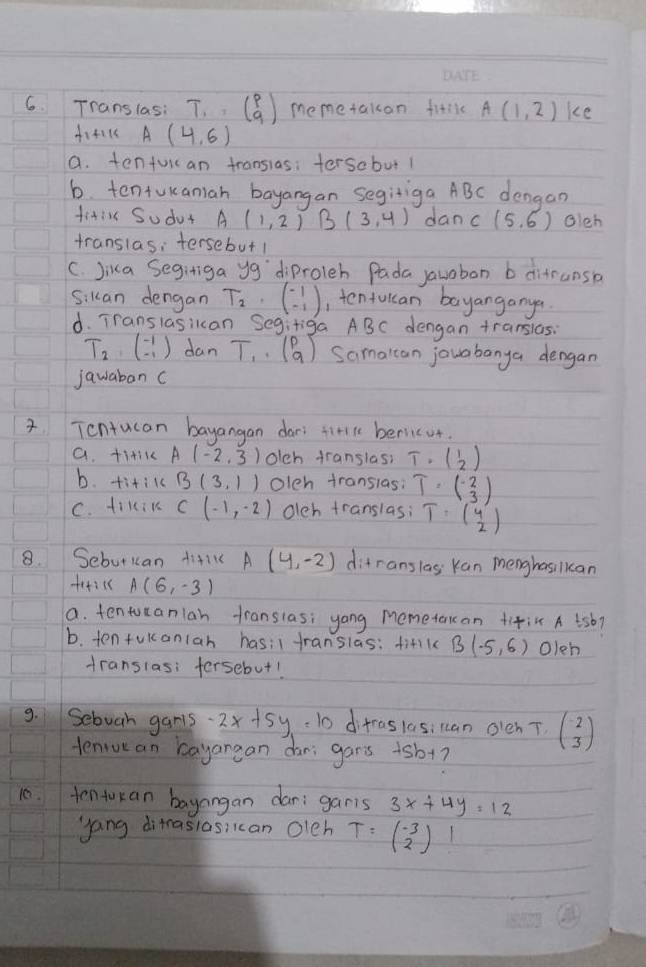 DATE :
6. Translasi T₁ = (p q) memetakan titik A (1,2) ke
titik A (4,6)
a. tentukan translasi tersebut !
b. tentukanlah bayangan segitiga ABC dengan
titik Sudut A (1,2) B (3,4) dan C (5,6) oleh
translasi tersebut !
c. Jika Segitiga yg diproleh Pada jawaban b ditransla
sikan dengan T₂ = (-1 -1), tentukan bayanganya.
d. Translasikan Segitiga ABC dengan translasi
T₂ = (-1 -1) dan T₁ = (p q) Samakan jawabanya dengan
jawaban C
7. Tentucan bayangan dari titik berikut.
a. titik A (-2,3) oleh translasi T = (1 2)
b. titik B (3,1) oleh translasi T = (-2 3)
c. tikik C (-1,-2) oleh translasi T = (4 2)
8. Sebutkan titik A (4,-2) ditranslasi kan menghasilkan
titik A (6,-3)
a. tentukanlah translasi yang memetakan titik A tsb?
b. tentukanlah hasil translasi titik B (-5,6) Oleh
translasi tersebut!
9. Sebuah garis -2x +5y = 10 ditraslasikan oleh T. (-2 3)
tentukan bayangan dari garis tsbt?
10. tentukan bayangan dari garis 3x + 4y = 12
yang ditraslasikan Oleh T = (-3 2) !